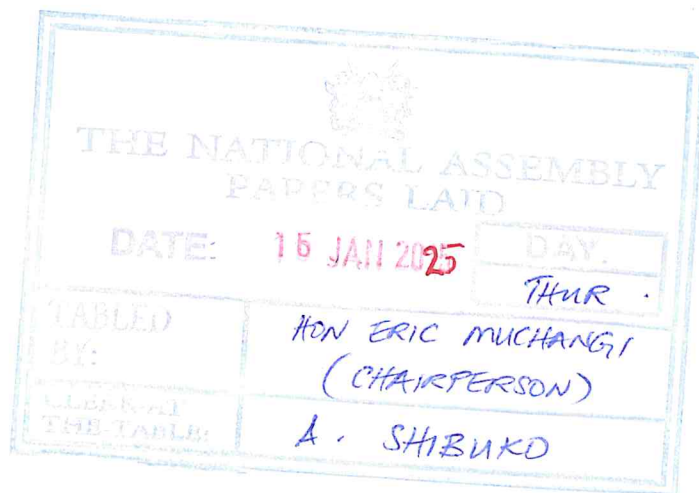 THE NATIONAL ASSEMBLY
PAPERS LAID
DATE: 16 JAN 2025 DAY.
THUR.
TABLED BY: HON ERIC MUCHANGI
(CHAIRPERSON)
CLERK AT
THE-TABLE: A. SHIBUKO